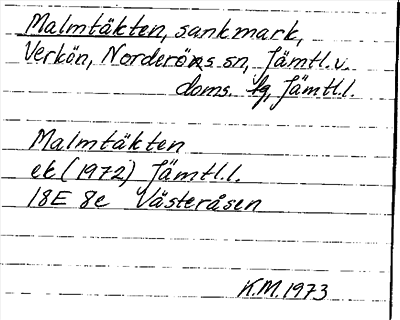 Malmtäkten, sankmark,
Verkön, Norderöns sn, Jämtl. v.
doms. tg, Jämtl.l.
Malmtäkten
ek (1972) Jämtl.l.
18E 8e Västeråsen
K.M. 1973